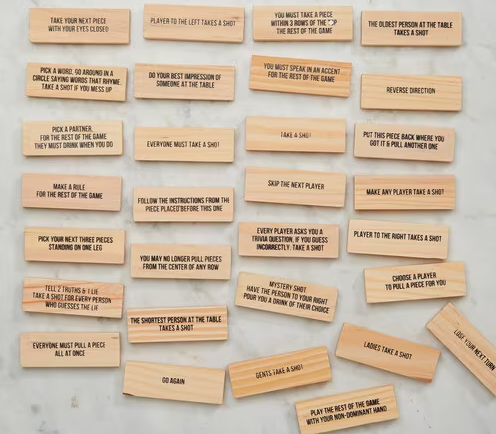 TAKE YOUR NEXT PIECE
WITH YOUR EYES CLOSED
PLAYER TO THE LEFT TAKES A SHOT
YOU MUST TAKE A PIECE
WITHIN 3 ROWS OF THE TOP
THE REST OF THE GAME
THE OLDEST PERSON AT THE TABLE
TAKES A SHOT
PICK A WORD, GO AROUND IN A
CIRCLE SAYING WORDS THAT RHYME
TAKE A SHOT IF YOU MESS UP
DO YOUR BEST IMPRESSION OF
SOMEONE AT THE TABLE
YOU MUST SPEAK IN AN ACCENT
FOR THE REST OF THE GAME
REVERSE DIRECTION
PICK A PARTNER,
FOR THE REST OF THE GAME
THEY MUST DRINK WHEN YOU DO
EVERYONE MUST TAKE A SHOT
TAKE A SHOT
PUT THIS PIECE BACK WHERE YOU
GOT IT & PULL ANOTHER ONE
MAKE A RULE
FOR THE REST OF THE GAME
FOLLOW THE INSTRUCTIONS FROM THE
PIECE PLACED BEFORE THIS ONE
SKIP THE NEXT PLAYER
MAKE ANY PLAYER TAKE A SHOT
PICK YOUR NEXT THREE PIECES
STANDING ON ONE LEG
YOU MAY NO LONGER PULL PIECES
FROM THE CENTER OF ANY ROW
EVERY PLAYER ASKS YOU A
TRIVIA QUESTION, IF YOU GUESS
INCORRECTLY: TAKE A SHOT
PLAYER TO THE RIGHT TAKES A SHOT
TELL 2 TRUTHS & 1 LIE
TAKE A SHOT FOR EVERY PERSON
WHO GUESSES THE LIE
THE SHORTEST PERSON AT THE TABLE
TAKES A SHOT
MYSTERY SHOT
HAVE THE PERSON TO YOUR RIGHT
POUR YOU A DRINK OF THEIR CHOICE
CHOOSE A PLAYER
TO PULL A PIECE FOR YOU
EVERYONE MUST PULL A PIECE
ALL AT ONCE
GO AGAIN
GENTS TAKE A SHOT
LADIES TAKE A SHOT
LOSE YOUR NEXT TURN
PLAY THE REST OF THE GAME
WITH YOUR NON-DOMINANT HAND